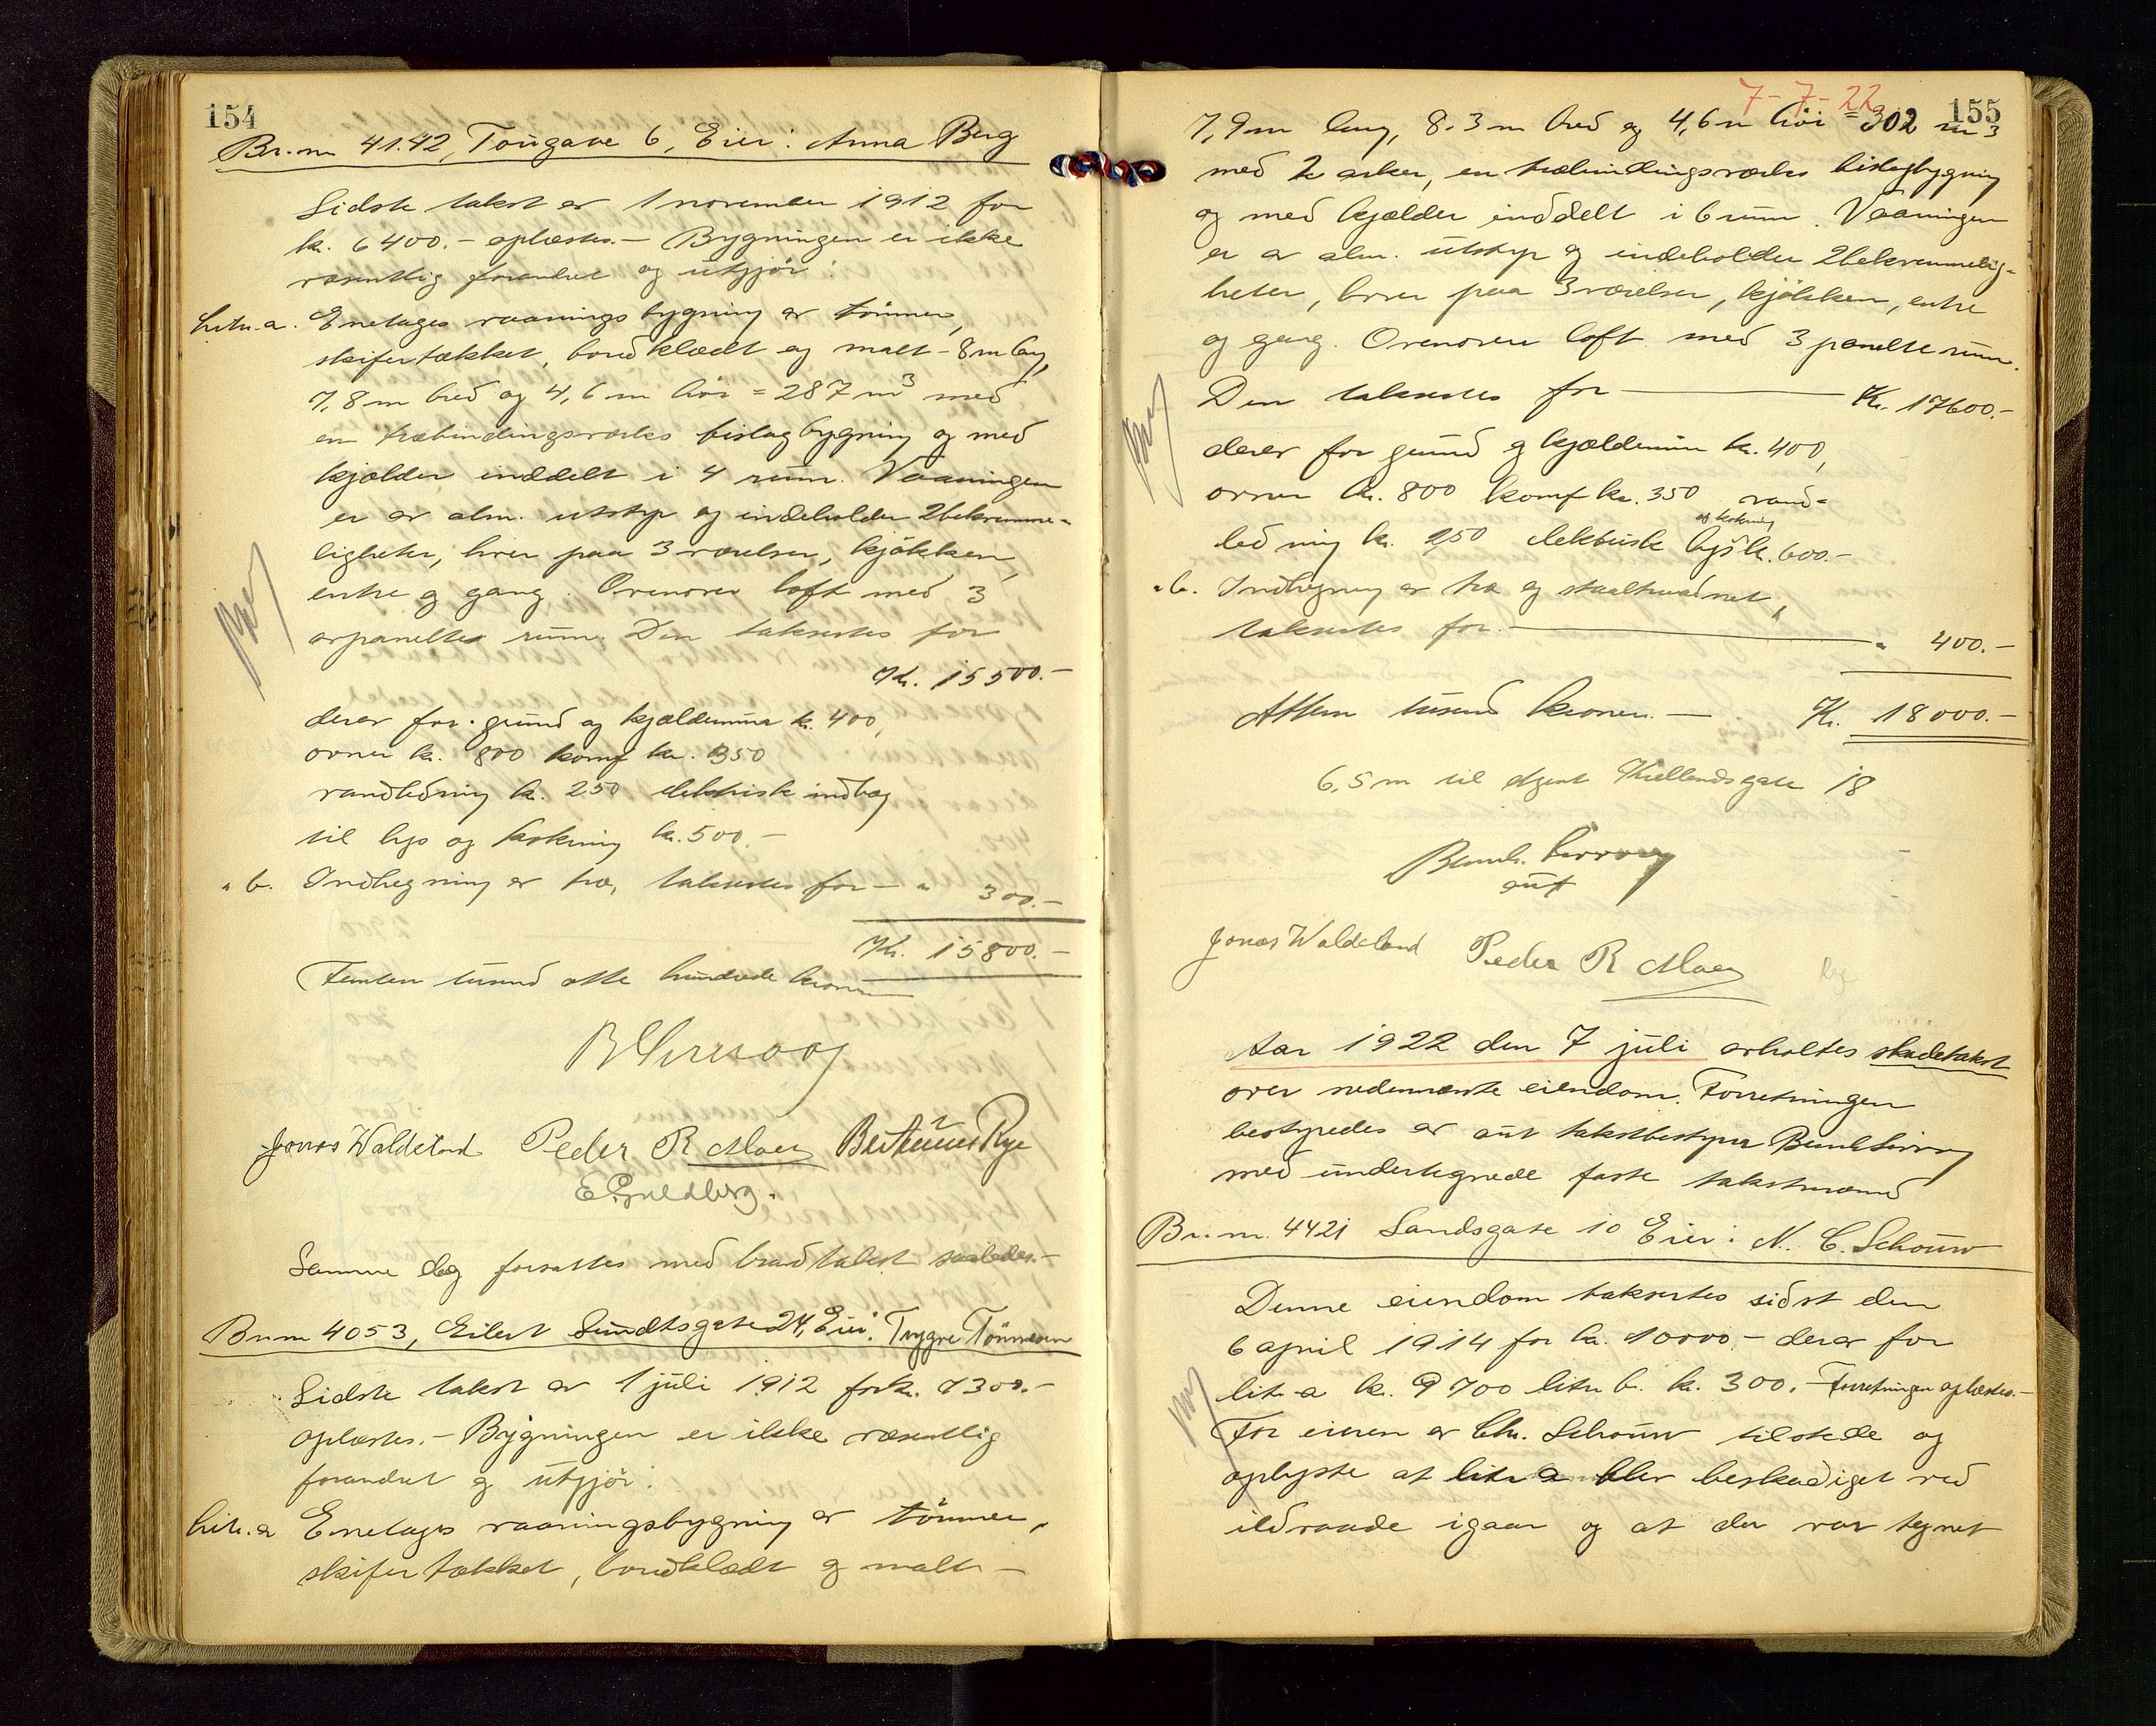 154
Br.nr 4142, Tougave 6, Eier: Anna Berg
Sidste takst er 1 november 1912 for
kr. 6400.- oplæstes.- Bygningen er ikke
væsentlig forandret og utgjör:
Litr. a. Enetages vaaningsbygning av tömmer,
skifertækket, bordklædt og malt - 8 m lang,
7,8 m bred og 4,6 m höi = 287 m3 med
en træbindingsverks bislagbygning og med
kjælder inddelt i 4 rum. Vaaningen
er av alm. utstyr og indeholder 2 bekvemme-
ligheter, hver paa 3 værelser, kjökken,
entre og gang. Ovenover loft med 3
avpanelte rum. Den takseres for
Kr. 15500.-
derav for grund og kjældermur kr. 400,
ovner kr. 800 komf kr. 350
vandledning kr. 250 elektrisk indlæg
til lys og kokning kr. 500.-
" b. Indhegning av træ, takseres for - " 300.-
Kr. 15800.-
Femten tusind otte hundrede kroner
Jonas Waldeland Peder R Moen Bertinius Rye
E. Guldberg.
Samme dag forsattes med brandtakst saaledes.-
Br nr 4053, Eilert Sundtsgate 24, Eier: Trygve Tönnesen
Sidste takst er 1 juli 1912 for kr. 7300.-
oplæstes.- Bygningen er ikke væsentlig
forandret og utgjör:
Litr. a Enetages vaaningsbygning av tömmer,
skifertækket, bordklædt og malt -
7-7-22
155
7,9 m lang, 8.3 m bred og 4,6 m höi = 302 m3
med 2 arker, en træbindingsverks bislagbygning
og med kjælder inddelt i 6 rum. Vaaningen
er av alm. utstyr og indeholder 2 bekvemmelig-
heter, hver paa 3 værelser, kjökken, entre
og gang. Ovenover loft med 3 panelte rum.
Den takseres for Kr. 17600.-
derav for grund og kjældermur kr. 400,
ovner kr. 800 komf kr. 350 vand-
ledning kr. 250 elektrisk lys og kokning kr. 600.-
" b. Indhegning av træ og staaltraadnet,
takseres for. " 400.-
Atten tusind kroner. - Kr. 18000.-
6,5 m til Agent Kiellandsgate 18
aut
Jonas Waldeland Peder R Moen Rye
Aar 1922 den 7 juli avholdtes skadetakst
over nedennævnte eiendom. Forretningen
bestyredes av aut takstbestyrer
med undertegnede faste takstmænd
Br. nr. 4421 Sandsgate 10 Eier: N. C. Schouw
Denne eiendom takseres sidst den
6 april 1914 for kr. 10000.- derav for
litr a kr. 9700 litr b. kr. 300.- Forretningen oplæstes.-
For eieren er Chr. Schouw tilstede og
oplyste at litr a blev beskadiget ved
ildvaade igaar og at der var tegnet